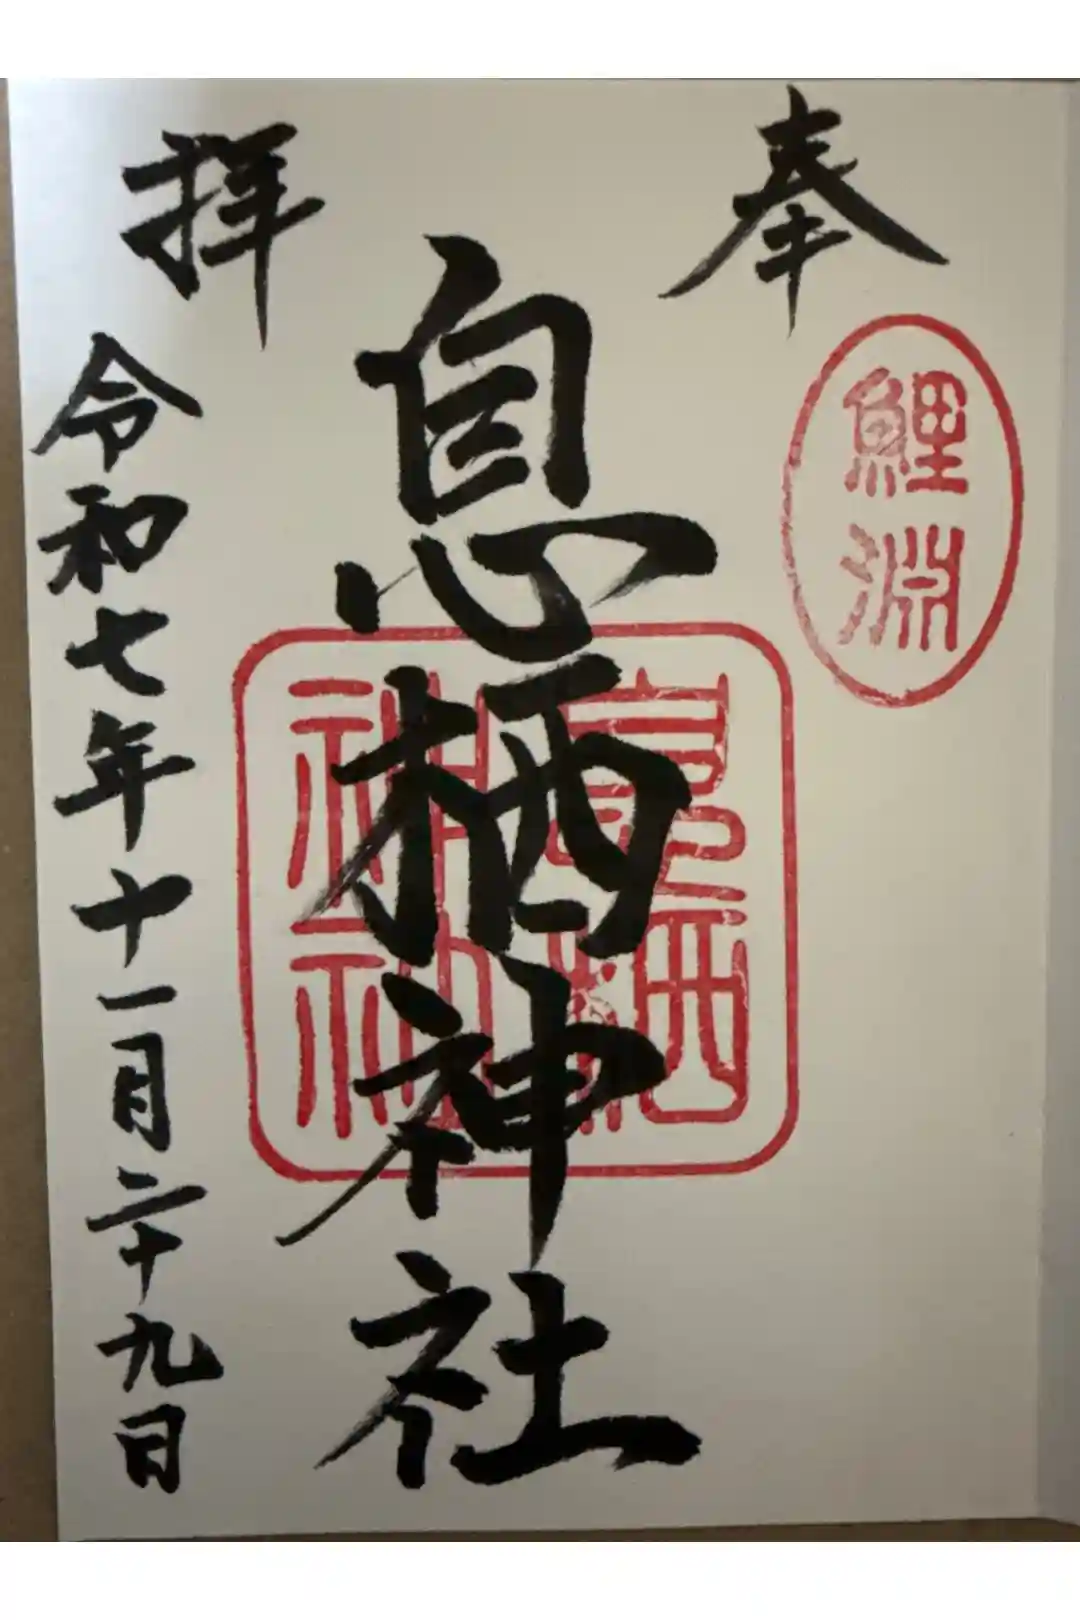 奉
拝
鯉淵
息栖神社
息栖神社
令和七年十一月二十九日